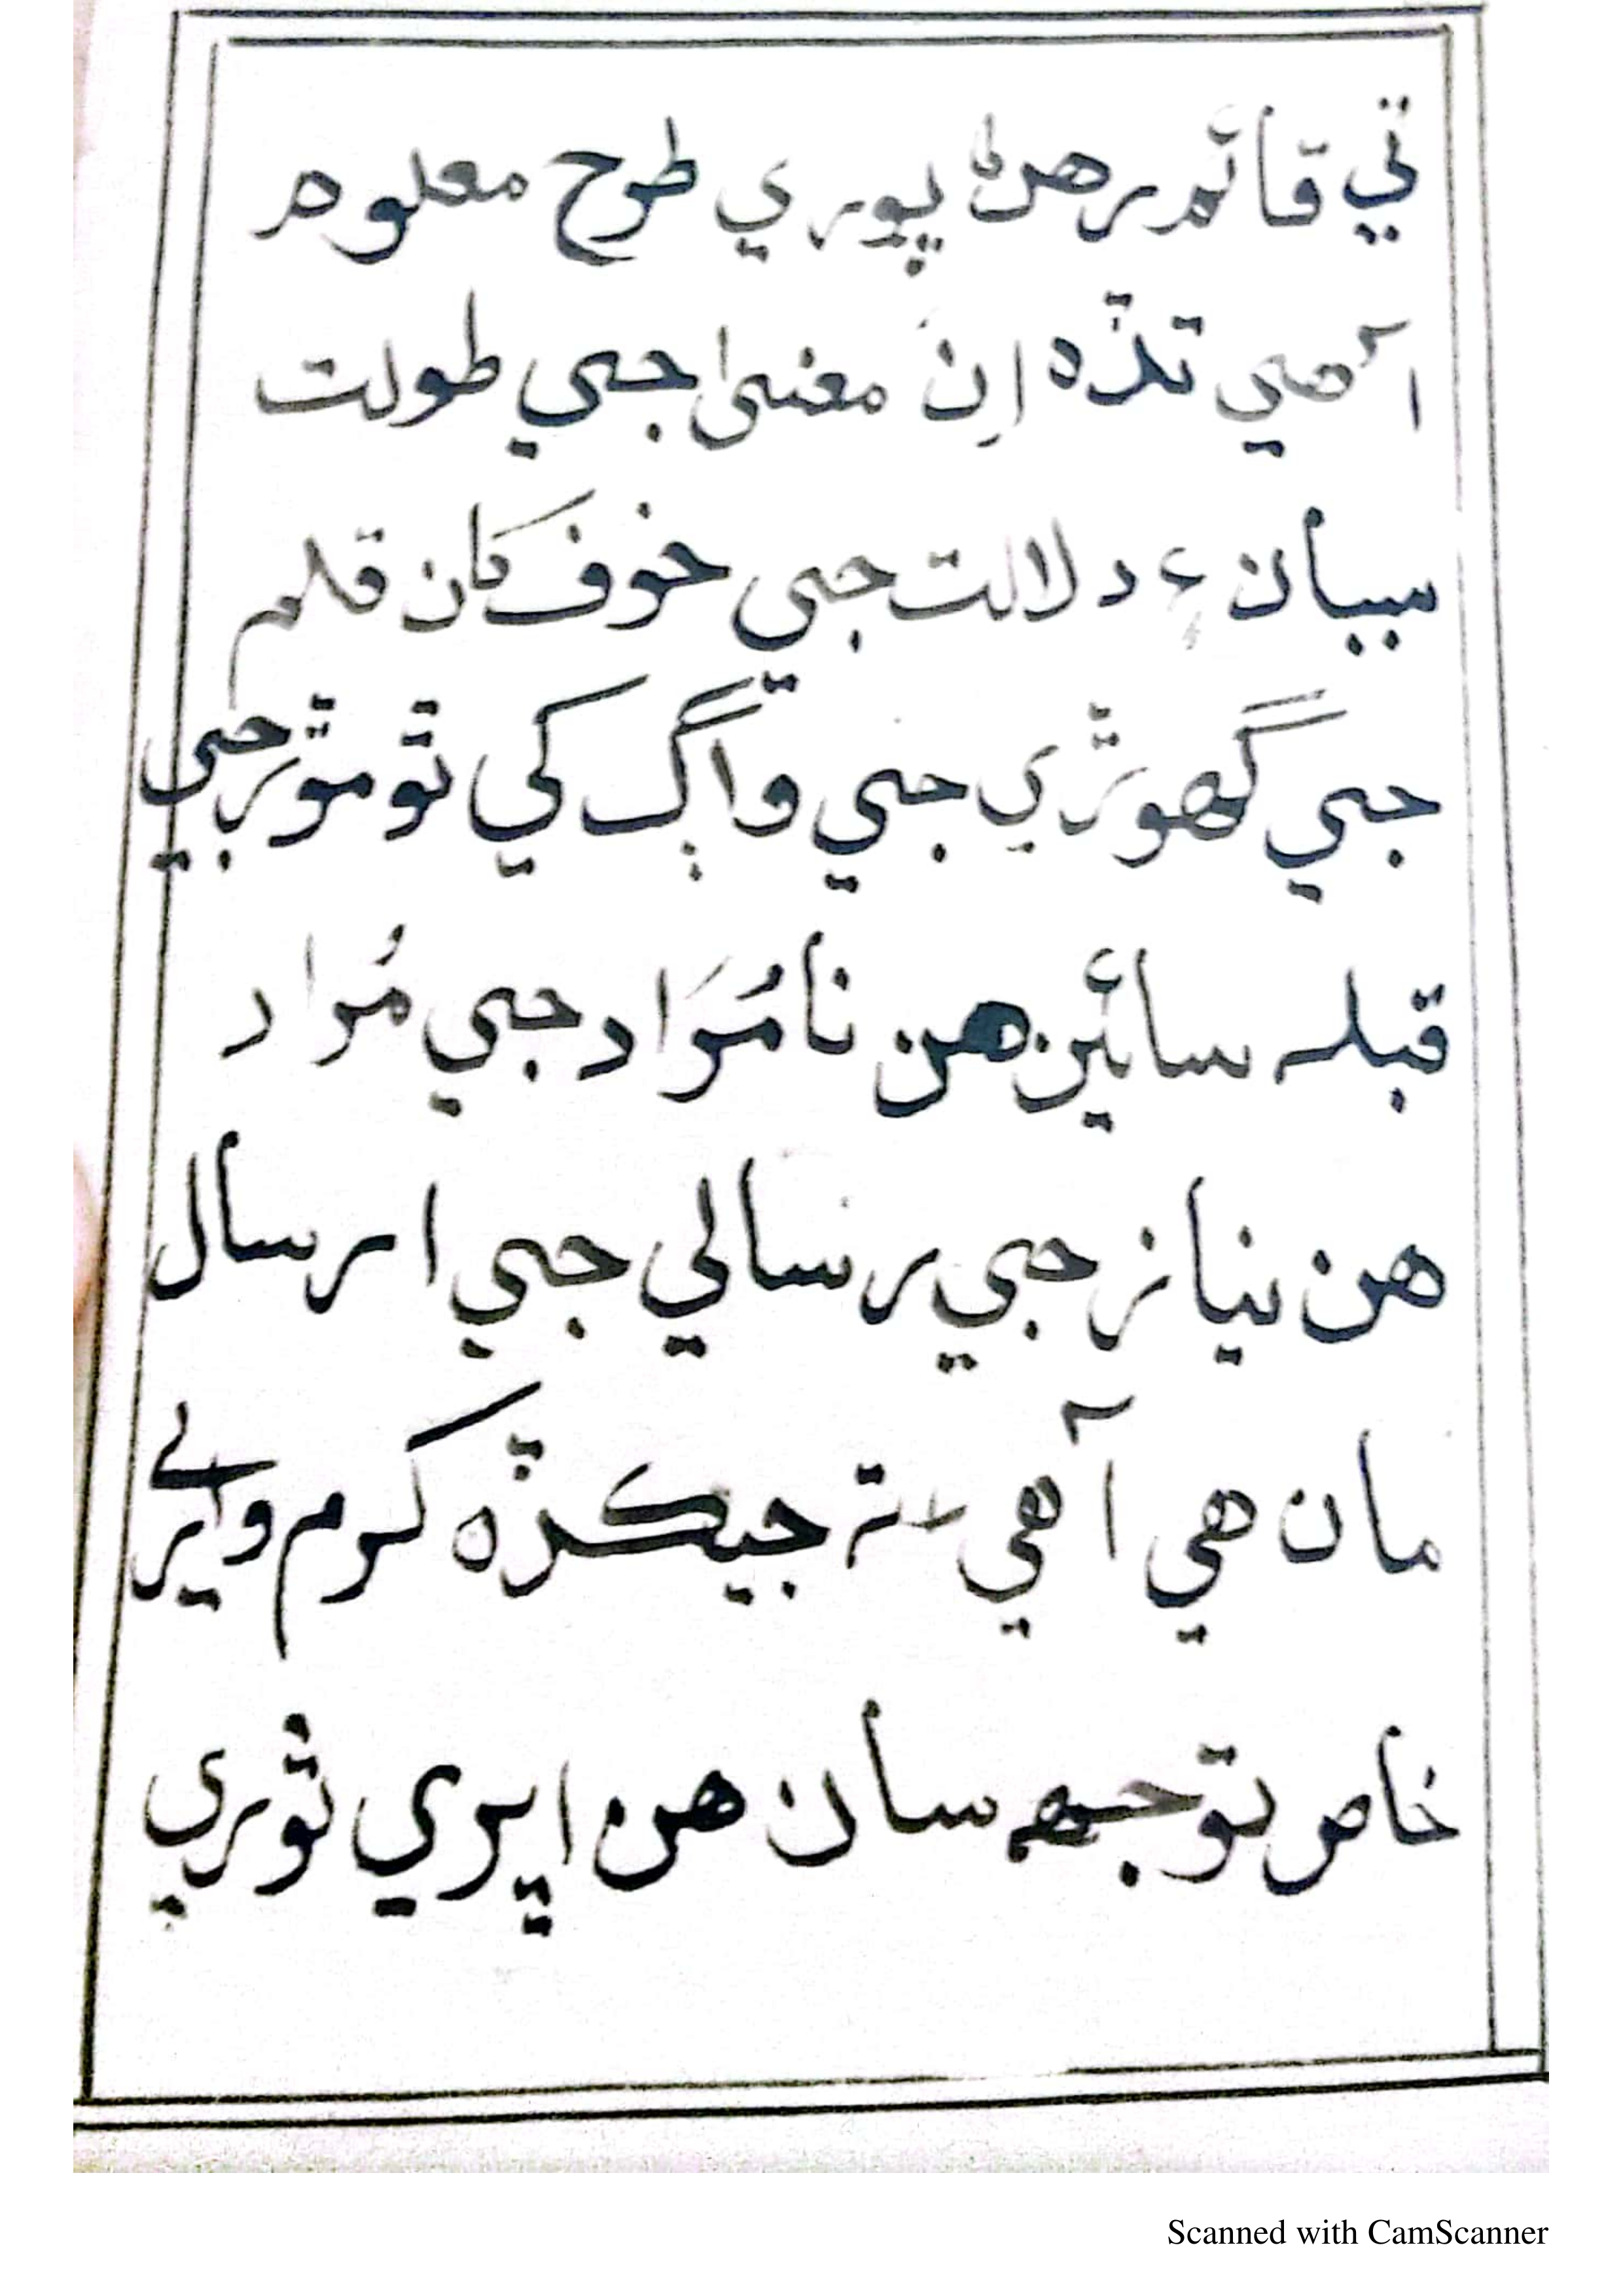 تي قائم رهڻ پوري طرح معلوم
آهي تڏه اِنَ معنىٰ جي طولت
بيان ۽ دلالت جي خوف کان قلم
جي گھوڙي جي واڳ کي ٿو موڙجي
قبلہ سائين هن نامُرَاد جي مُراد
هن نياز جي رسالي جي ارسال
مان هي آهي تہ جيڪڏه ڪرم وارے
خاص توجهہ سان هن اپري ٿوري
Scanned with CamScanner